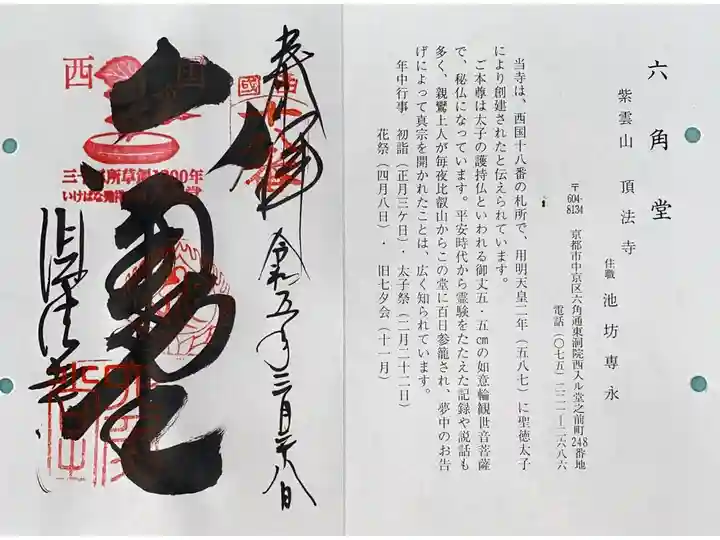 六角堂
紫雲山 頂法寺
住職 池坊専永
〒604-8134 京都市中京区六角通東洞院西入ル堂之前町248番地
電話(〇七五)二二一―二六八六
当寺は、西国十八番の札所で、用明天皇二年(五八七)に聖徳太子
により創建されたと伝えられています。
ご本尊は太子の護持仏といわれる御丈五・五㎝の如意輪観世音菩薩
で、秘仏になっています。平安時代から霊験をたたえた記録や説話も
多く、親鸞上人が毎夜比叡山からこの堂に百日参籠され、夢中のお告
げによって真宗を開かれたことは、広く知られています。
年中行事 初詣(正月三ケ日)・太子祭(二月二十二日)
花祭(四月八日)・旧七夕会(十一月)
奉拝 令和五年三月二十八日
六角堂
頂法寺
西国
三十三所草創1300年
いけばな発祥